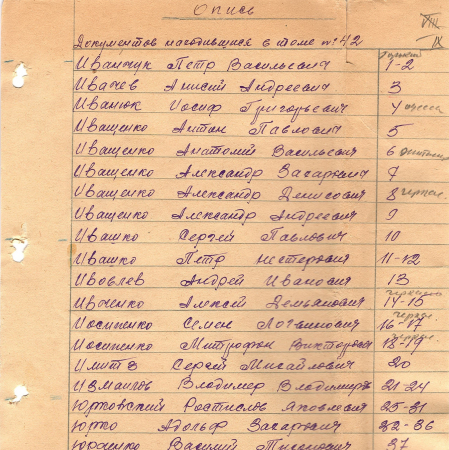 Опись
VIII
IX
Документов находившиеся в томе № 42
Иванчук Пётр Васильевич 1-2
Ивачев Анисий Андреевич 3
Иванюк Иосиф Григорьевич 4 одесса
Иващенко Антон Павлович 5
Иващенко Анатолий Васильевич 6
Иващенко Александр Захарович 7
Иващенко Александр Денисович 8
Иващенко Александр Андреевич 9
Ивашко Сергей Павлович 10
Ивашко Пётр Нестерович 11-12
Иовлев Андрей Иванович 13
Ивченко Алексей Демьянович 14-15
Иосипенко Семен Логвинович 16-17
Иосипенко Митрофан Викторович 18-19
Сергей Мисаилович 20
Измаилов Владимир Владимиров 21-24
Юрковский Ростислав Яковлевич 25-31
Юрко Адольф Захарович 32-36
Юрченко Василий 37